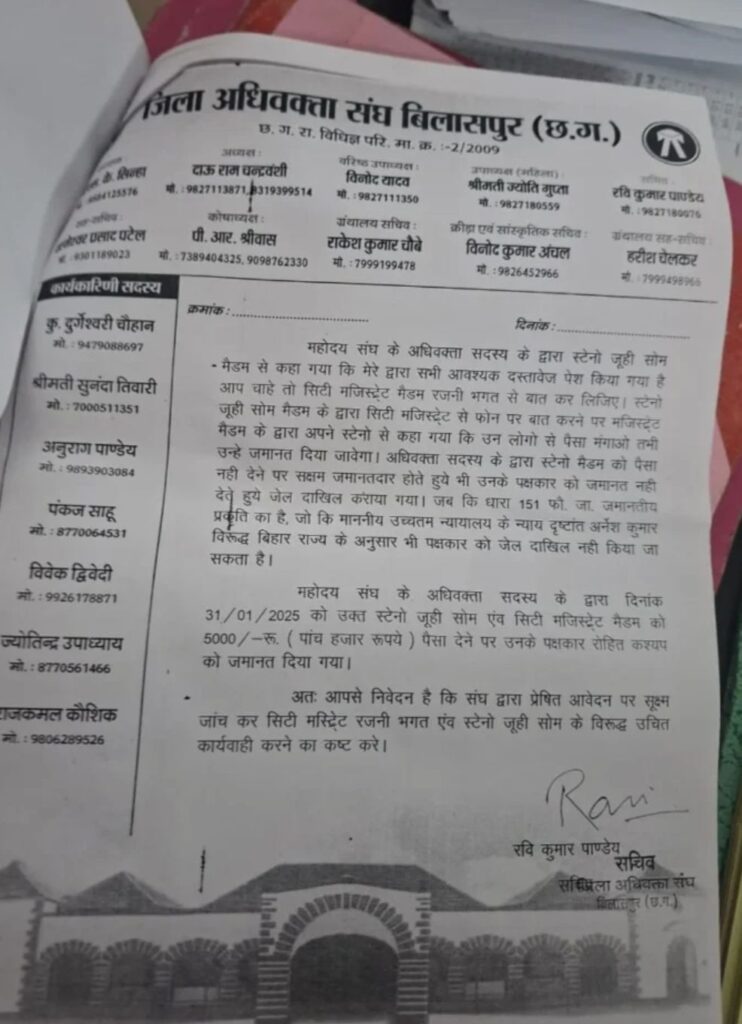 जिला अधिवक्ता संघ बिलासपुर (छ.ग.)
छ. ग. रा. विधिज्ञ परि. मा. क्र. :-2/2009
के. सिन्हा
अध्यक्ष :
दाऊ राम चन्द्रवंशी
मो. : 9827113871, 8319399514
वरिष्ठ उपाध्यक्ष :
विनोद यादव
मो. : 9827111350
उपाध्यक्ष (महिला) :
श्रीमती ज्योति गुप्ता
मो. : 9827180559
सचिव :
रवि कुमार पाण्डेय
मो. : 9827180076
सह-सचिव :
प्रसाद पटेल
मो. : 9301189023
कोषाध्यक्ष :
पी. आर. श्रीवास
मो. : 7389404325, 9098762330
ग्रंथालय सचिव :
राकेश कुमार चौबे
मो. : 7999199478
क्रीड़ा एवं सांस्कृतिक सचिव :
विनोद कुमार अंचल
मो. : 9826452966
ग्रंथालय सह-सचिव :
हरीश चेलकर
मो. : 7999498966
कार्यकारिणी सदस्य
कु. दुर्गेश्वरी चौहान
मो. : 9479088697
श्रीमती सुनंदा तिवारी
मो. : 7000511351
अनुराग पाण्डेय
मो. : 9893903084
पंकज साहू
मो. : 8770064531
विवेक द्विवेदी
मो. : 9926178871
ज्योतिन्द्र उपाध्याय
मो. : 8770561466
राजकमल कौशिक
मो. : 9806289526
क्रमांक : ........................................ दिनांक : ........................................
महोदय संघ के अधिवक्ता सदस्य के द्वारा स्टेनो जूही सोम
मैडम से कहा गया कि मेरे द्वारा सभी आवश्यक दस्तावेज पेश किया गया है
आप चाहे तो सिटी मजिस्ट्रेट मैडम रजनी भगत से बात कर लिजिए। स्टेनो
जूही सोम मैडम के द्वारा सिटी मजिस्ट्रेट से फोन पर बात करने पर मजिस्ट्रेट
मैडम के द्वारा अपने स्टेनो से कहा गया कि उन लोगो से पैसा मंगाओ तभी
उन्हे जमानत दिया जावेगा। अधिवक्ता सदस्य के द्वारा स्टेनो मैडम को पैसा
नही देने पर सक्षम जमानतदार होते हुये भी उनके पक्षकार को जमानत नही
देते हुये जेल दाखिल कराया गया। जब कि धारा 151 फौ. जा. जमानतीय
प्रकृति का है, जो कि माननीय उच्चतम न्यायालय के न्याय दृष्टांत अर्नेश कुमार
विरूद्ध बिहार राज्य के अनुसार भी पक्षकार को जेल दाखिल नही किया जा
सकता है।
महोदय संघ के अधिवक्ता सदस्य के द्वारा दिनांक
31/01/2025 को उक्त स्टेनो जूही सोम एंव सिटी मजिस्ट्रेट मैडम को
5000/-रू. ( पांच हजार रूपये ) पैसा देने पर उनके पक्षकार रोहित कश्यप
को जमानत दिया गया।
अतः आपसे निवेदन है कि संघ द्वारा प्रेषित आवेदन पर सूक्ष्म
जांच कर सिटी मस्ट्रेिट रजनी भगत एंव स्टेनो जूही सोम के विरूद्ध उचित
कार्यवाही करने का कष्ट करे।
Ravi
रवि कुमार पाण्डेय
सचिव
जिला अधिवक्ता संघ
बिलासपुर (छ.ग.)